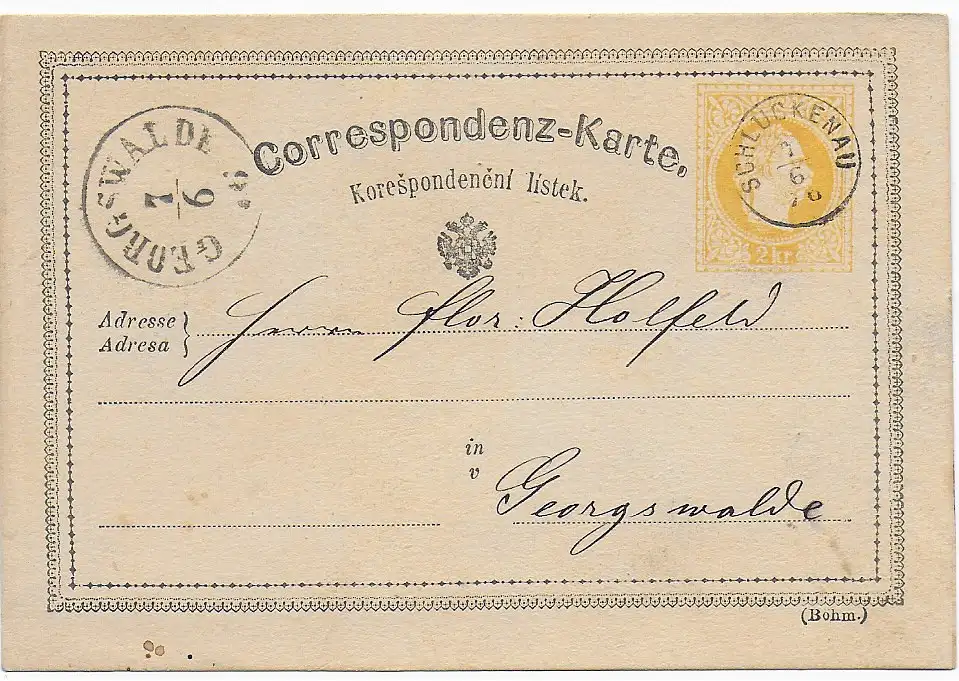 Correspondenz-Karte.
Korešpondenční lístek.
GEORGSWALDE
7
6
SCHLUCKENAU
6
2 Kr.
Adresse
Adresa
Herrn Flor: Holfeld
in
v
Georgswalde
(Böhm.)